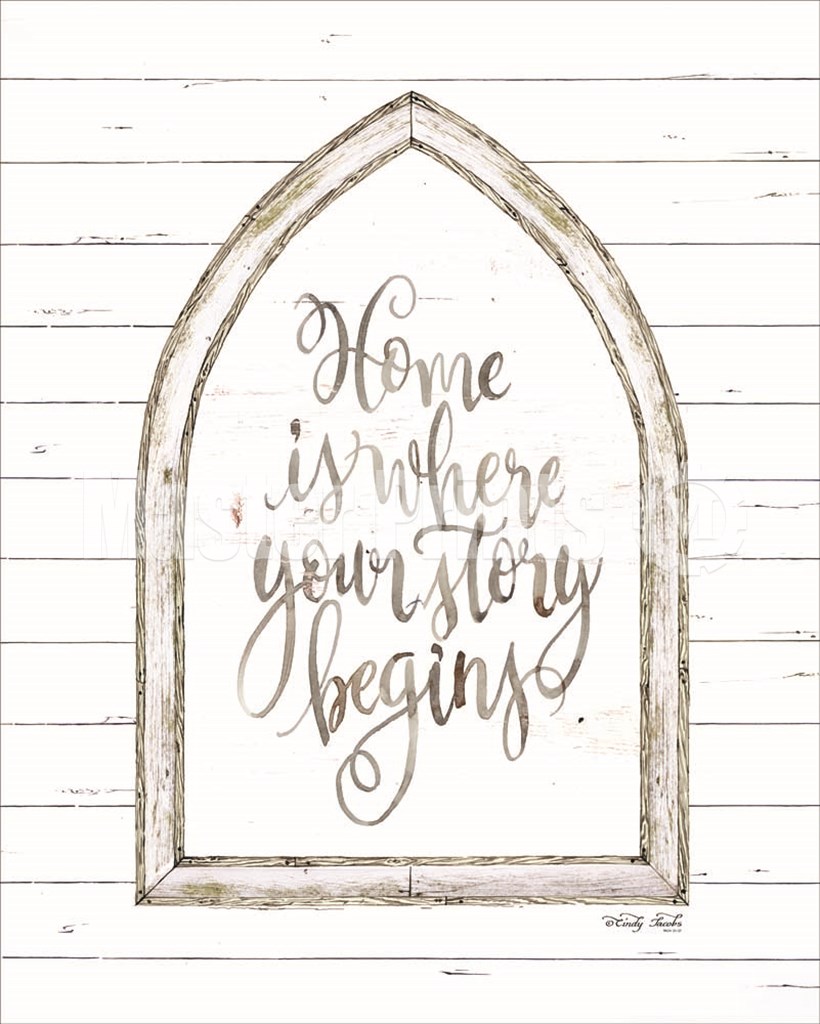 Home
is where
your story
begins
©Cindy Jacobs